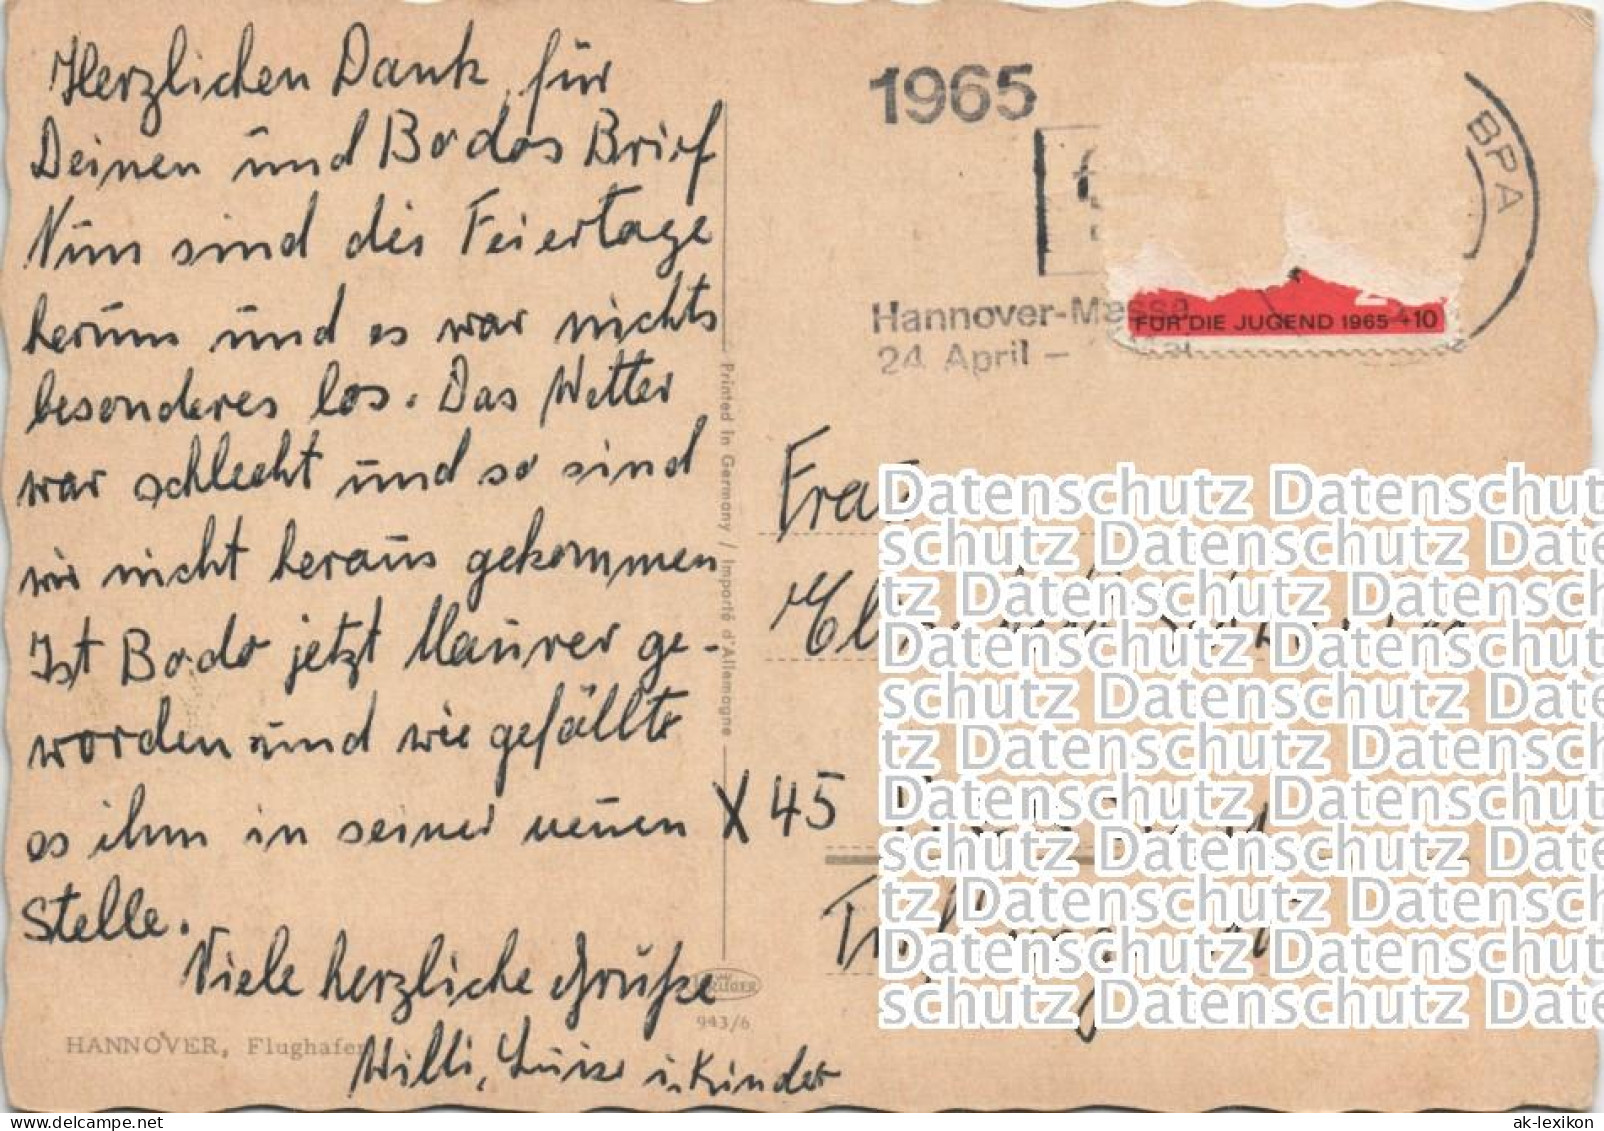 Herzlichen Dank für
Deinen und Bodos Brief
Nun sind die Feiertage
herum und es war nichts
besonderes los. Das Wetter
war schlecht und so sind
wir nicht heraus gekommen
Ist Bodo jetzt Maurer ge-
worden und wie gefällts
es ihm in seiner neuen
Stelle.
Viele herzliche Grüße
Willi, Luise u. Kinder
HANNOVER, Flughafen
943/6
KRÜGER
Printed in Germany / Importé d'Allemagne
1965
Hannover-Messe
24 April –
BPA
FÜR DIE JUGEND 1965 +10
Frau
X 45
Datenschutz Datenschutz
schutz Datenschutz Date
tz Datenschutz Datensch
Datenschutz Datenschutz
schutz Datenschutz Date
tz Datenschutz Datensch
Datenschutz Datenschutz
schutz Datenschutz Date
tz Datenschutz Datensch
Datenschutz Datenschutz
schutz Datenschutz Date
www.delcampe.net
ak-lexikon